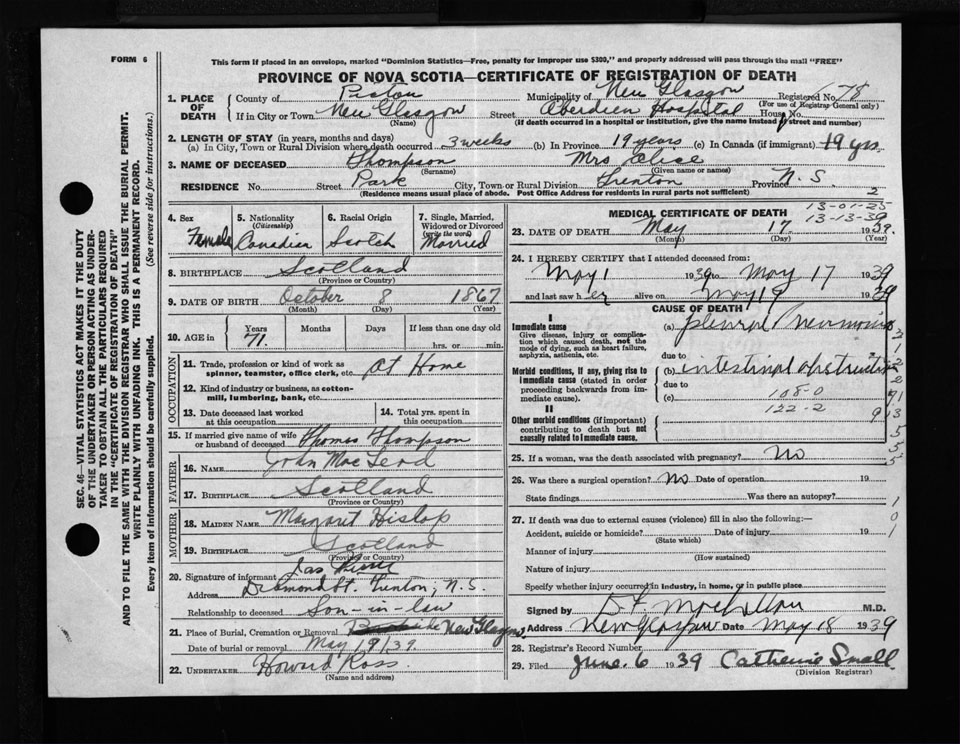 FORM 6
This form if placed in an envelope, marked "Dominion Statistics—Free, penalty for improper use $300," and properly addressed will pass through the mail "FREE"
PROVINCE OF NOVA SCOTIA—CERTIFICATE OF REGISTRATION OF DEATH
1. PLACE OF DEATH
County of Pictou Municipality of New Glasgow Registered No. 78
(For use of Registrar General only)
If in City or Town New Glasgow Street Aberdeen Hospital House No.
(Name) (If death occurred in a hospital or institution, give the name instead of street and number)
2. LENGTH OF STAY (in years, months and days)
(a) In City, Town or Rural Division where death occurred 3 weeks (b) In Province 19 years (c) In Canada (if immigrant) 19 yrs
3. NAME OF DECEASED Thompson Mrs Alice
(Surname) (Given name or names)
RESIDENCE No. Street Park City, Town or Rural Division Trenton Province N.S.
(Residence means usual place of abode. Post Office Address for residents in rural parts not sufficient) 2
4. Sex Female
5. Nationality (Citizenship) Canadian
6. Racial Origin Scotch
7. Single, Married, Widowed or Divorced (write the word) Married
8. BIRTHPLACE Scotland
(Province or Country)
9. DATE OF BIRTH October 8 1867
(Month) (Day) (Year)
10. AGE in Years 71 Months Days If less than one day old
hrs. or min.
OCCUPATION
11. Trade, profession or kind of work as spinner, teamster, office clerk, etc. At Home
12. Kind of industry or business, as cotton-mill, lumbering, bank, etc.
13. Date deceased last worked at this occupation
14. Total yrs. spent in this occupation
15. If married give name of wife or husband of deceased Thomas Thompson
FATHER
16. NAME John MacLeod
17. BIRTHPLACE Scotland
MOTHER
18. MAIDEN NAME Margaret Hislop
19. BIRTHPLACE Scotland
(Province or Country)
20. Signature of informant Jas
Address Desmond St. Trenton, N.S.
Relationship to deceased Son-in-law
21. Place of Burial, Cremation or Removal New Glasgow
Date of burial or removal May 19/39.
22. UNDERTAKER Howard Ross
(Name and address)
MEDICAL CERTIFICATE OF DEATH
13-01-25
13-13-39
23. DATE OF DEATH May 17 1939.
(Month) (Day) (Year)
24. I HEREBY CERTIFY that I attended deceased from:
May 1 1939 to May 17 1939
and last saw her alive on May 17 1939
CAUSE OF DEATH
I
Immediate cause
Give disease, injury or complication which caused death, not the mode of dying, such as heart failure, asphyxia, asthenia, etc.
(a) pleural Pneumonia
due to
Morbid conditions, if any, giving rise to immediate cause (stated in order proceeding backwards from immediate).
(b) intestinal obstruction
due to
(c) 108-0
122-2
II
Other morbid conditions (if important) contributing to death but not causally related to immediate cause.
25. If a woman, was the death associated with pregnancy? No
26. Was there a surgical operation? No Date of operation 19
State findings Was there an autopsy?
27. If death was due to external causes (violence) fill in also the following:—
Accident, suicide or homicide? Date of injury 19
(State which)
Manner of injury
(How sustained)
Nature of injury
Specify whether injury occurred in industry, in home, or in public place
Signed by M.D.
Address New Glasgow Date May 18 1939
28. Registrar's Record Number
29. Filed June. 6 1939 Catherine Small
(Division Registrar)
SEC. 46—VITAL STATISTICS ACT MAKES IT THE DUTY
OF THE UNDERTAKER OR PERSON ACTING AS UNDER-
TAKER TO OBTAIN ALL THE PARTICULARS REQUIRED
IN THE "CERTIFICATE OF REGISTRATION OF DEATH"
AND TO FILE THE SAME WITH THE DIVISION REGISTRAR WHO SHALL ISSUE THE BURIAL PERMIT.
WRITE PLAINLY WITH UNFADING INK. THIS IS A PERMANENT RECORD.
Every item of information should be carefully supplied. (See reverse side for instructions.)